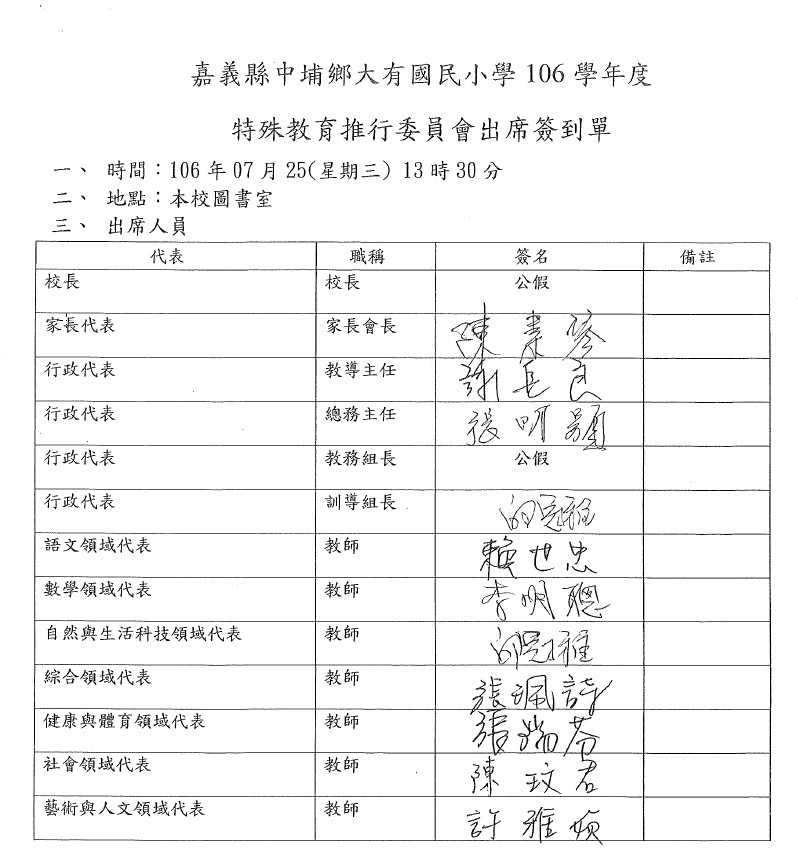 嘉義縣中埔鄉大有國民小學 106 學年度
特殊教育推行委員會出席簽到單
一、 時間：106 年 07 月 25(星期三) 13 時 30 分
二、 地點：本校圖書室
三、 出席人員
代表 職稱 簽名 備註
校長 校長 公假
家長代表 家長會長 陳
行政代表 教導主任 謝長良
行政代表 總務主任 張明顯
行政代表 教務組長 公假
行政代表 訓導組長 冠雅
語文領域代表 教師 賴世忠
數學領域代表 教師 李明聰
自然與生活科技領域代表 教師 冠雅
綜合領域代表 教師 張珮詩
健康與體育領域代表 教師 張瑞芬
社會領域代表 教師 陳玟君
藝術與人文領域代表 教師 許雅